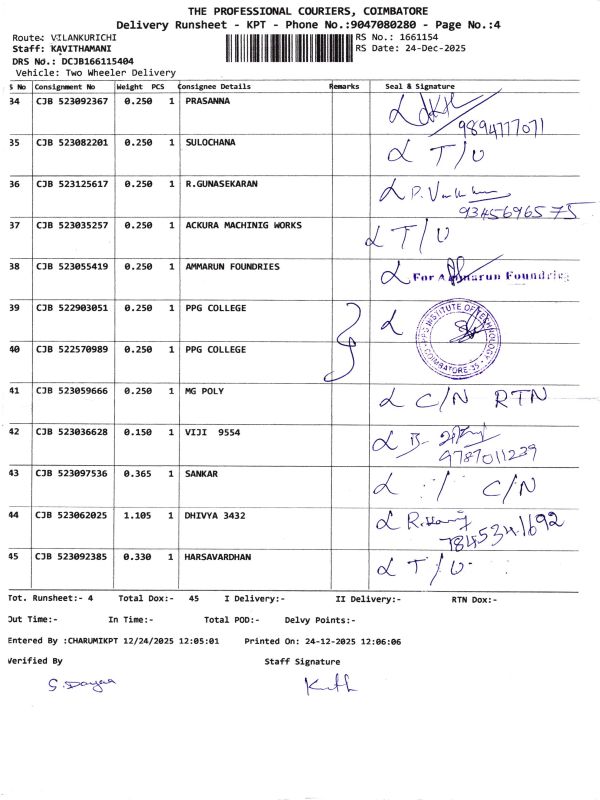 THE PROFESSIONAL COURIERS, COIMBATORE
Delivery Runsheet - KPT - Phone No.:9047080280 - Page No.:4
Route: VILANKURICHI
RS No.: 1661154
Staff: KAVITHAMANI
RS Date: 24-Dec-2025
DRS No.: DCJB166115404
Vehicle: Two Wheeler Delivery
S No Consignment No Weight PCS Consignee Details Remarks Seal & Signature
34 CJB 523092367 0.250 1 PRASANNA
9894777071
35 CJB 523082201 0.250 1 SULOCHANA T/U
36 CJB 523125617 0.250 1 R.GUNASEKARAN
9345696575
37 CJB 523035257 0.250 1 ACKURA MACHINIG WORKS T/U
38 CJB 523055419 0.250 1 AMMARUN FOUNDRIES For Ammarun Foundries
39 CJB 522903051 0.250 1 PPG COLLEGE PPG INSTITUTE OF TECHNOLOGY COIMBATORE-35
40 CJB 522570989 0.250 1 PPG COLLEGE
41 CJB 523059666 0.250 1 MG POLY C/N RTN
42 CJB 523036628 0.150 1 VIJI 9554
9787011239
43 CJB 523097536 0.365 1 SANKAR C/N
44 CJB 523062025 1.105 1 DHIVYA 3432
7845341692
45 CJB 523092385 0.330 1 HARSAVARDHAN T/U
Tot. Runsheet:- 4 Total Dox:- 45 I Delivery:- II Delivery:- RTN Dox:-
Out Time:- In Time:- Total POD:- Delvy Points:-
Entered By :CHARUMIKPT 12/24/2025 12:05:01 Printed On: 24-12-2025 12:06:06
Verified By Staff Signature